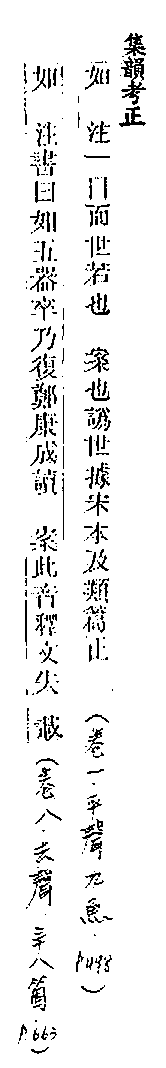 集韻考正
如　注一曰而世若也　案也譌世據宋本及類篇正　（卷一．平聲九魚．p498）
如　注書曰如五器卒乃復鄭康成讀　案此昝釋文失載（卷八．去聲．三十八箇．p.663）